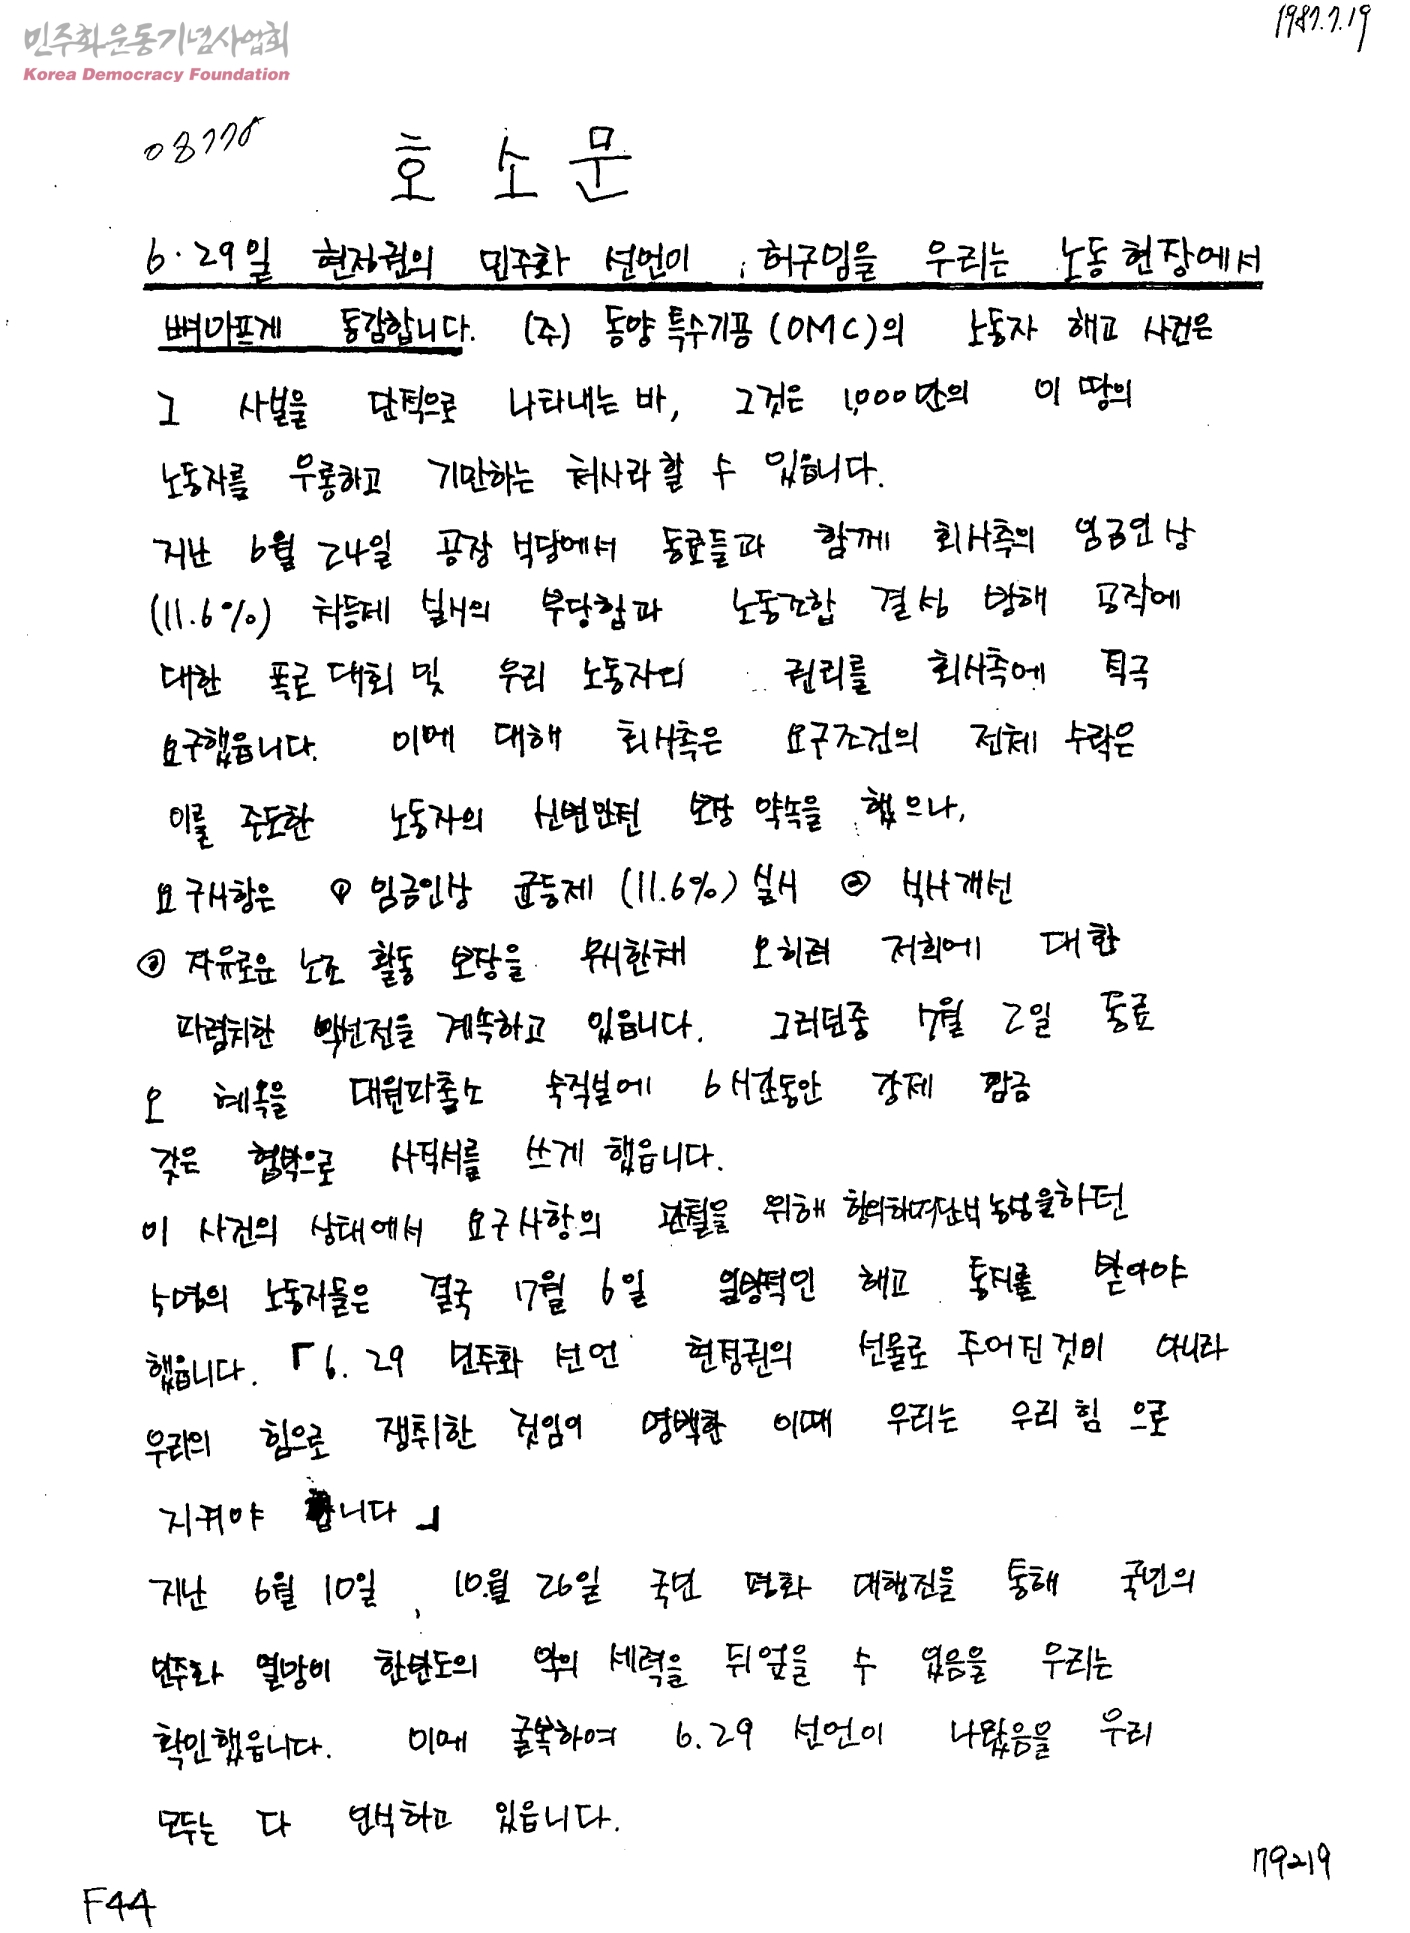 민주화운동기념사업회
Korea Democracy Foundation
1987.7.19
08778
호소문
6.29일 현정권의 민주화 선언이 허구임을 우리는 노동현장에서
뼈아프게 동감합니다. (주) 동양특수기공(OMC)의 노동자 해고 사건은
그 사실을 단적으로 나타내는 바, 그것은 1,000만의 이 땅의
노동자를 우롱하고 기만하는 처사라 할 수 있읍니다.
지난 6월 24일 공장 식당에서 동료들과 함께 회사측의 임금인상
(11.6%) 차등제 실시의 부당함과 노동조합 결성 방해 공작에
대한 폭로 대회 및 우리 노동자의 권리를 회사측에 적극
요구했읍니다. 이에 대해 회사측은 요구조건의 전체 수락은
이를 주도한 노동자의 신변안전 보장 약속을 했으나,
요구사항은 ① 임금인상 균등제 (11.6%) 실시 ② 식사개선
③ 자유로운 노조 활동 보장을 무시한채 오히려 저희에 대한
파렴치한 악선전을 계속하고 있읍니다. 그러던중 7월 2일 동료
오 혜옥을 대원파출소 숙직실에 6시간동안 강제 깜금
갖은 협박으로 사직서를 쓰게 했읍니다.
이 사건의 상태에서 요구사항의 관철을 위해 항의하며 단식농성을하던
5명의 노동자들은 결국 7월 6일 일방적인 해고 통지를 받아야
했읍니다. 「6.29 민주화 선언 현정권의 선물로 주어진것이 아니라
우리의 힘으로 쟁취한 것임이 명백한 이때 우리는 우리 힘 으로
지켜야 합니다」
지난 6월 10일, 10월 26일 국민 평화 대행진을 통해 국민의
민주화 열망이 한반도의 악의 세력을 뒤엎을 수 있음을 우리는
확인했읍니다. 이에 굴복하여 6.29 선언이 나왔음을 우리
모두는 다 인식하고 있읍니다.
79219
F44